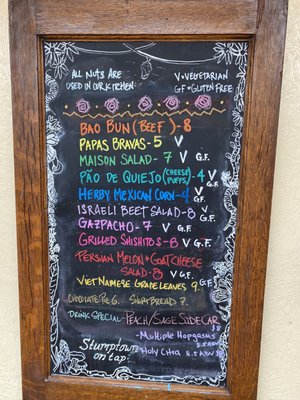 All Nuts Are
used in our kitchen
V=Vegetarian
GF=Gluten Free
Bao Bun (Beef) - 8
Papas Bravas - 5 V
Maison Salad - 7 V G.F.
Pão de Quiejo (Cheese Puffs) - 4 V G.F.
Herby Mexican Corn - 4 V G.F.
Israeli Beet Salad - 8 V G.F.
Gazpacho - 7 V G.F.
Grilled Shishitos - 8 V G.F.
Persian Melon + Goat Cheese
Salad - 8 V G.F.
Vietnamese Grape Leaves 9. G.F.
Chocolate Pie 6. Shortbread 7.
Drink Special - Peach/Sage Sidecar
$8
Stumptown
on tap:
- Multiple Hopgasms
8.5 ABV
- Holy Citra 8.5 ABV